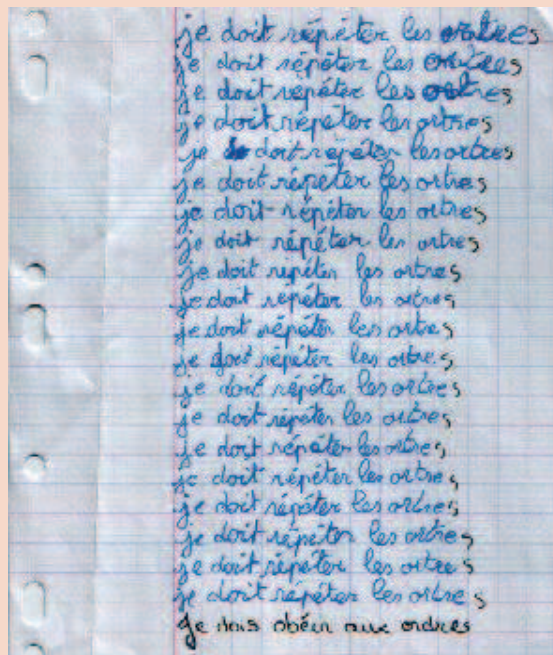 je doit répéter les ortres
je doit répéter les ortres
je doit répéter les ortres
je doit répéter les ortres
je doit répéter les ortres
je doit répéter les ortres
je doit répéter les ortres
je doit répéter les ortres
je doit répéter les ortres
je doit répéter les ortres
je doit répéter les ortres
je doit répéter les ortres
je doit répéter les ortres
je doit répéter les ortres
je doit répéter les ortres
je doit répéter les ortres
je doit répéter les ortres
je doit répéter les ortres
je doit répéter les ortres
je doit répéter les ortres
Je dois obéir aux ordres